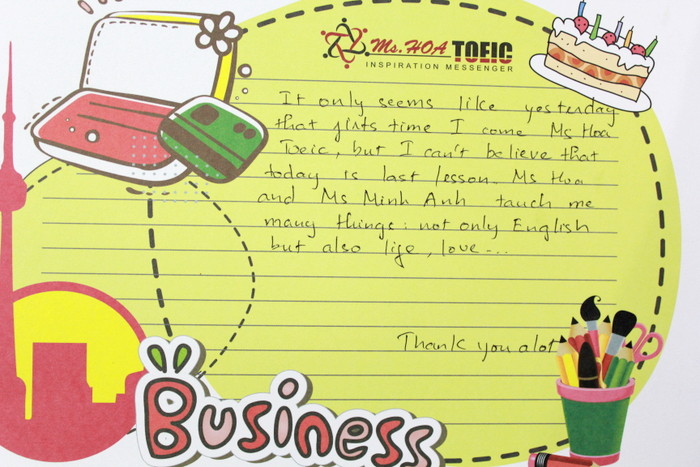 Ms. HOA TOEIC
INSPIRATION MESSENGER
It only seems like yesterday
that firts time I come Ms Hoa
Toeic, but I can't believe that
today is last lesson. Ms Hoa
and Ms Minh Anh tauch me
many things: not only English
but also life, love...
Thank you alot
Business